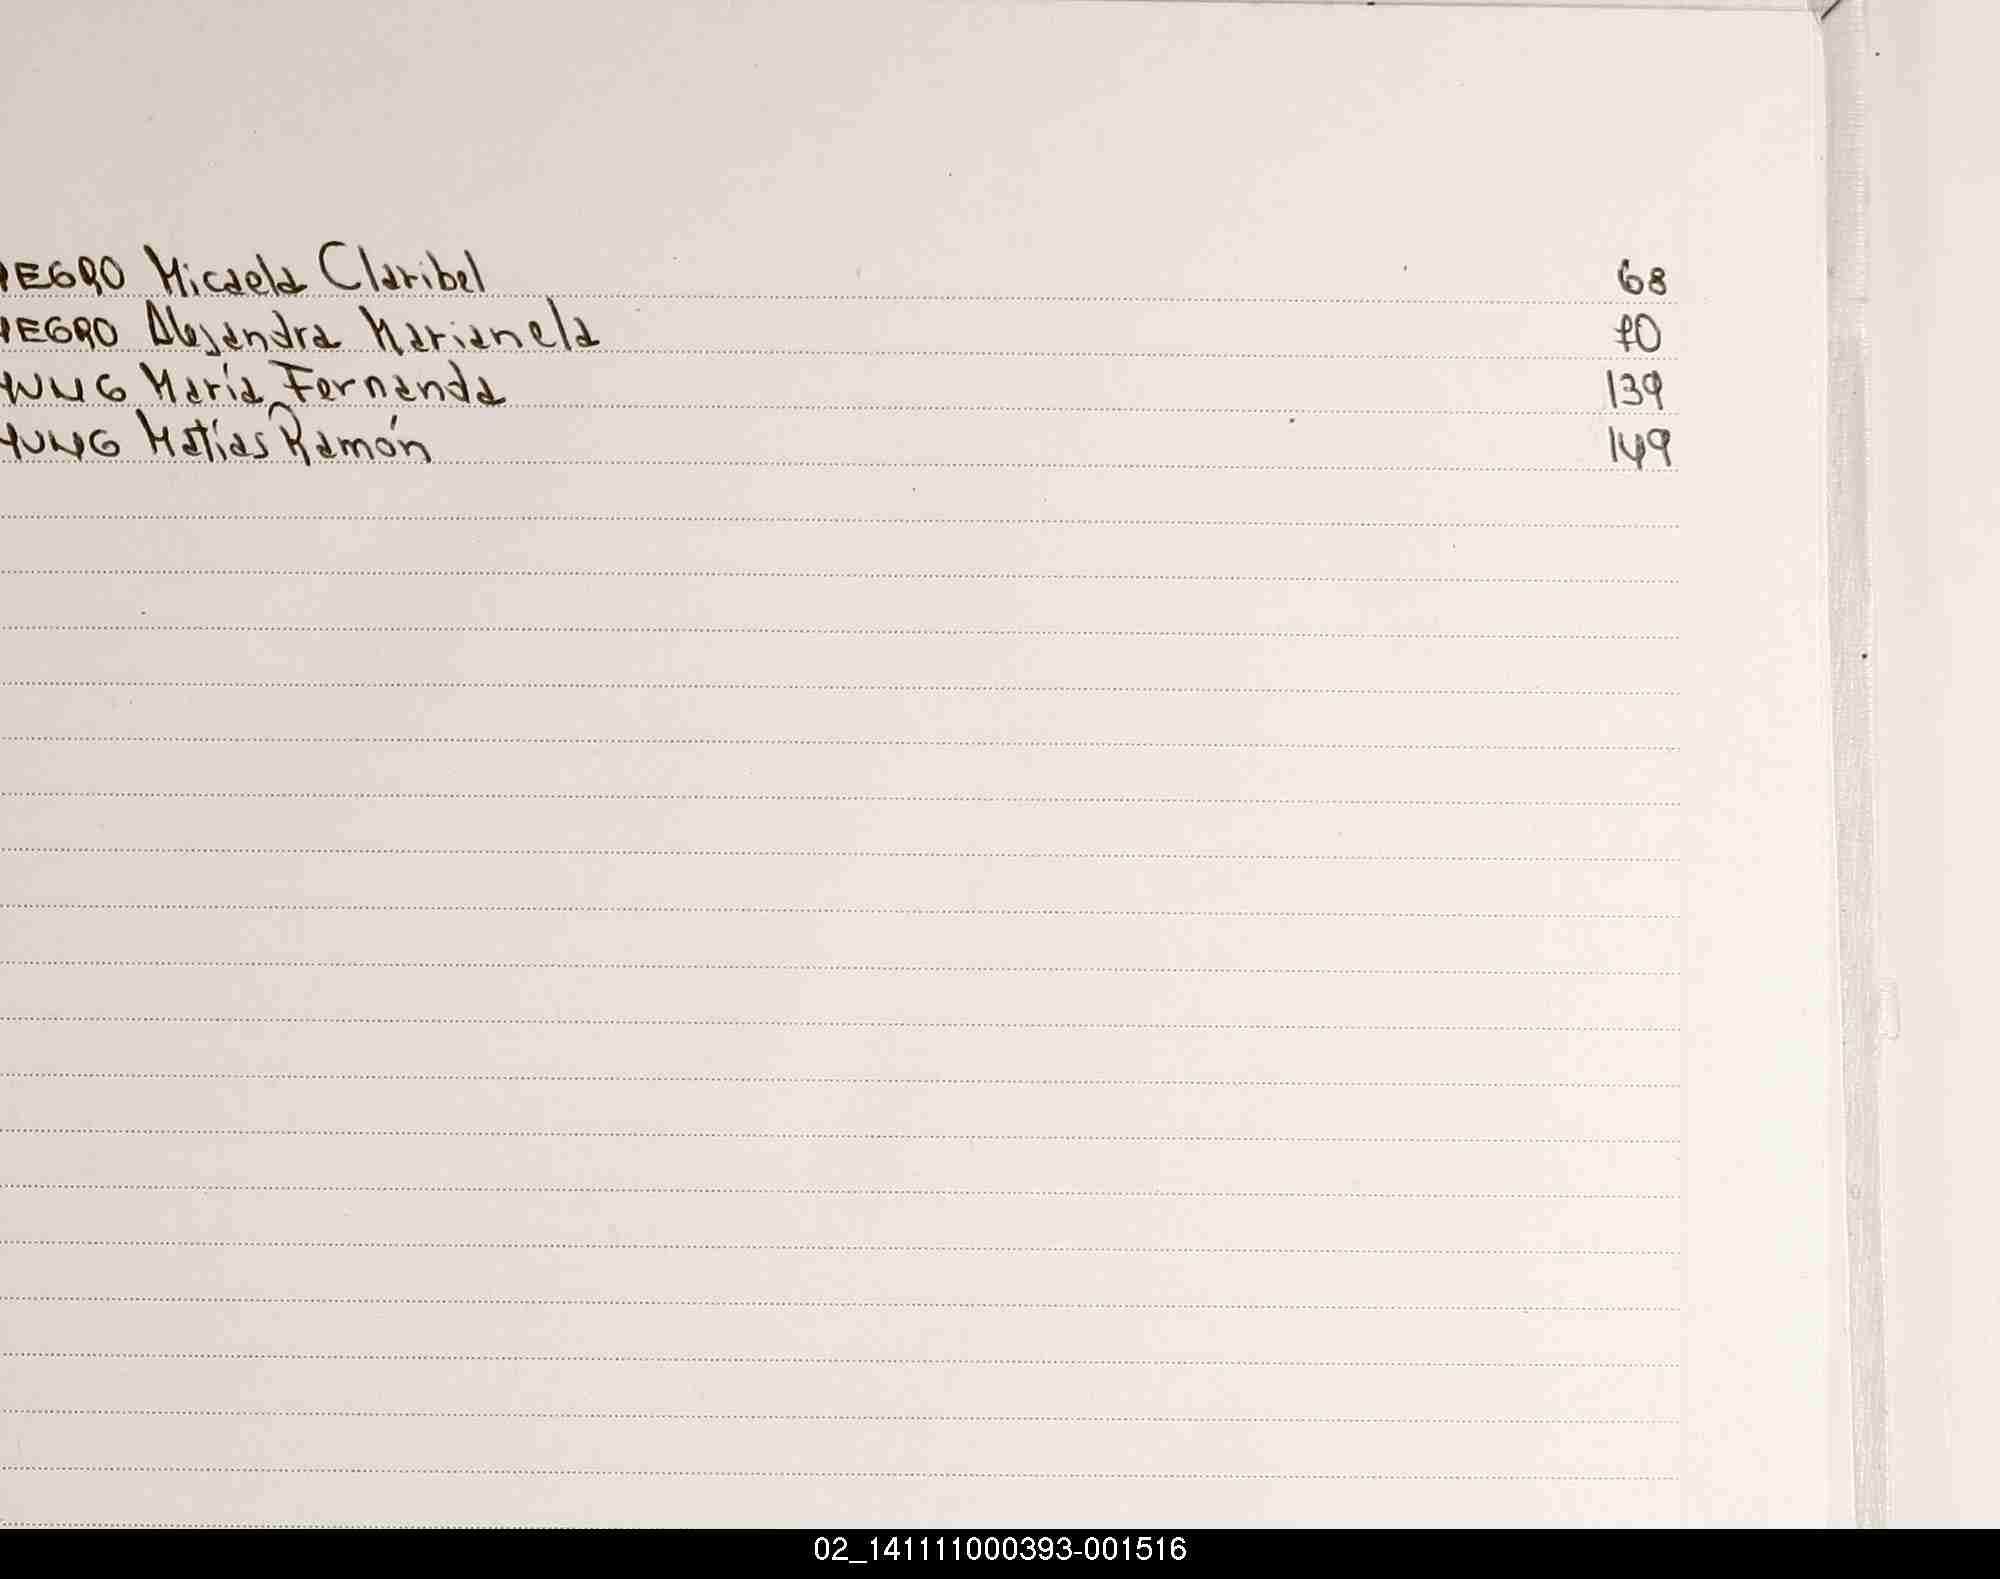 YEGRO Micaela Claribel 68
YEGRO Alejandra Marianela 70
YUNG María Fernanda 139
YUNG Matías Ramón 149
02_141111000393-001516